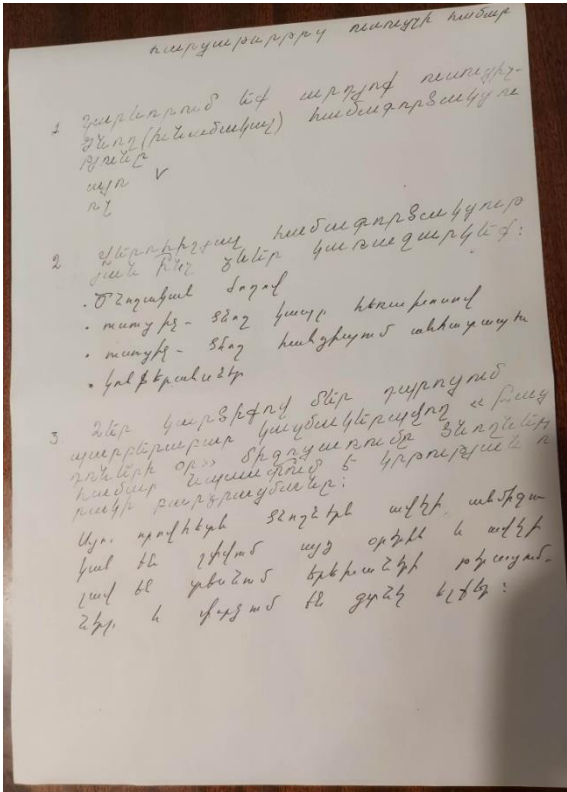 Հարցաթերթիկ ուսուցչի համար
1. Կարևորում եք արդյոք ուսուցիչ-
ծնող (խնամակալ) համագործակցու
թյունը
այո ✓
ոչ
2. Վերոհիշյալ համագործակցութ
յան ինչ ձևեր կառաջարկեք:
• Ծնողական ժողով
• ուսուցիչ - ծնող կապը հեռախոսով
• ուսուցիչ - ծնող հանդիպում անհատապես
• կոնֆերանսներ
3. Ձեր կարծիքով Ձեր դպրոցում
պարբերաբար կազմակերպվող « Բաց
դռների օր» միջոցառումը ծնողների
համար նպաստում է կրթության ո
րակի բարձրացմանը:
Այո, որովհետև ծնողներն ավելի անմիջա
կան են լինում այդ օրերին և ավելի
լավ են տեսնում երեխաների թերացում-
ները և փորձում են գտնել ելքեր: